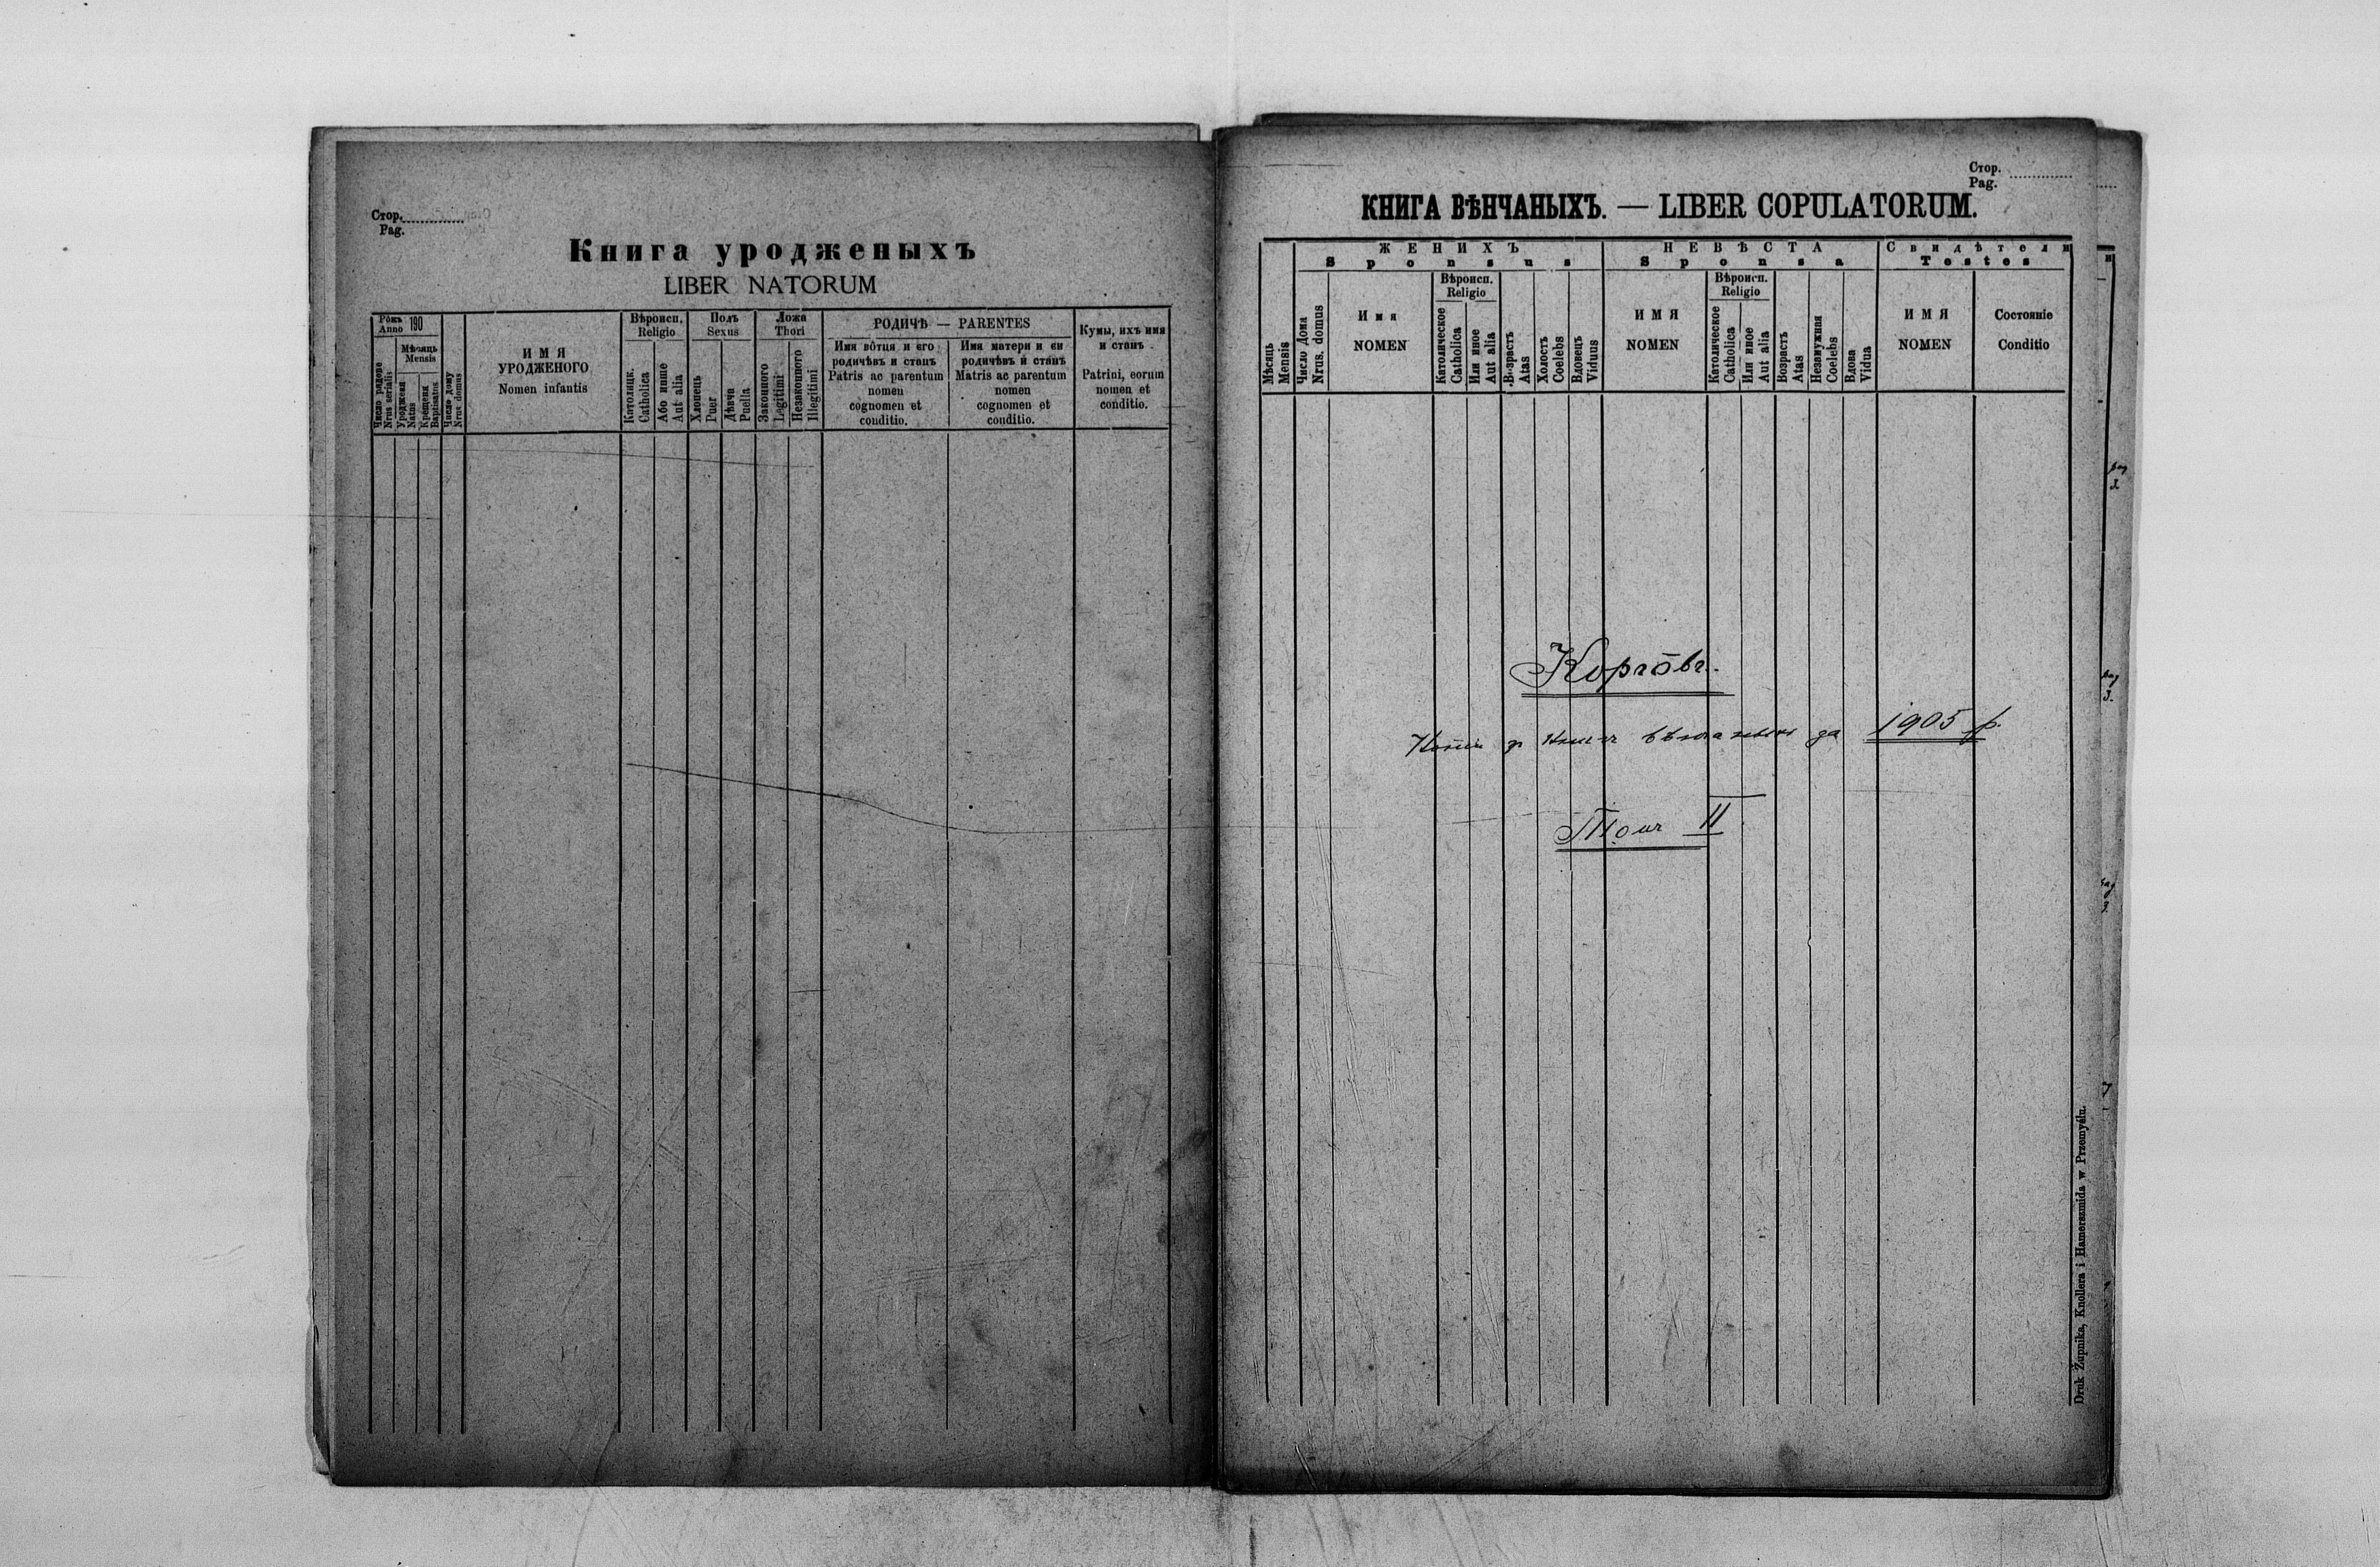 Стор.
Pag.
Книга урожденыхъ
LIBER NATORUM
Рôкъ
Anno 190
Число рядове
Nrus serialis
Мѣсяць
Mensis
Уродженя
Natus
Крещеня
Baptisatus
Число дому
Nrus domus
ИМЯ
УРОДЖЕНОГО
Nomen infantis
Вѣроисп.
Religio
Католицк.
Catholica
Або инше
Aut alia
Полъ
Sexus
Хлопець
Puer
Дѣвча
Puella
Ложа
Thori
Законного
Legitimi
Незаконного
Illegitimi
РОДИЧѢ — PARENTES
Имя вôтця и его
родичѣвъ и станъ
Patris ac parentum
nomen
cognomen et
conditio.
Имя матери и еи
родичѣвъ и станъ
Matris ac parentum
nomen
cognomen et
conditio.
Кумы, ихъ имя
и станъ
Patrini, eorum
nomen et
conditio.
Стор.
Pag.
КНИГА ВѢНЧАНЫХЪ. — LIBER COPULATORUM.
Мѣсяць
Mensis
Число Дома
Nrus. domus
ЖЕНИХЪ
Sponsus
Имя
NOMEN
Вѣроисп.
Religio
Католическое
Catholica
Или иное
Aut alia
Возрастъ
Atas
Холостъ
Coelebs
Вдовецъ
Viduus
НЕВѢСТА
Sponsa
ИМЯ
NOMEN
Вѣроисп.
Religio
Католическое
Catholica
Или иное
Aut alia
Возрастъ
Atas
Незамужная
Coelebs
Вдова
Vidua
Свидѣтели
Testes
ИМЯ
NOMEN
Состояніе
Conditio
Корчôвъ.
Копія зъ книгъ вѣнчаныхъ за 1905 р.
Томъ II
Druk Żupnika, Knollera i Hamerszmida w Przemyślu.